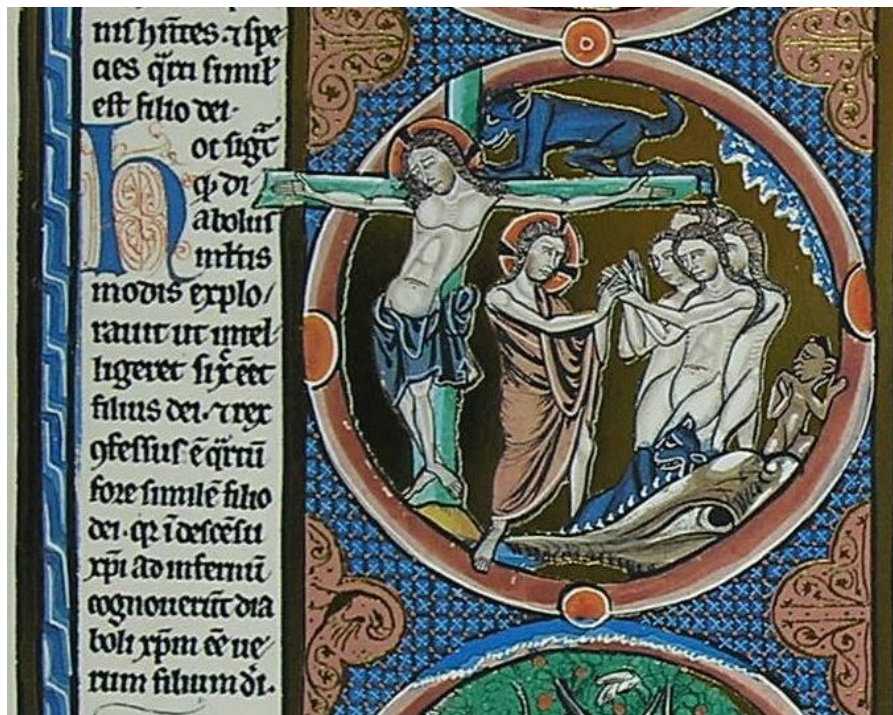 nis hñtes ⁊ spe
cies q̃rti simil'
est filio dei.
hoc sigt̃
q̃ di
abolus
mltis
modis explo/
rauit ut intel
ligeret si xp̃c ẽet
filius dei. ⁊ rex
ꝯfessus ẽ q̃rtũ
fore similẽ filio
dei. q̃ ĩ descẽsu
xp̃i ad infernũ
cognouerũt dia
boli xp̃m ẽe ue/
rum filium d̃i.